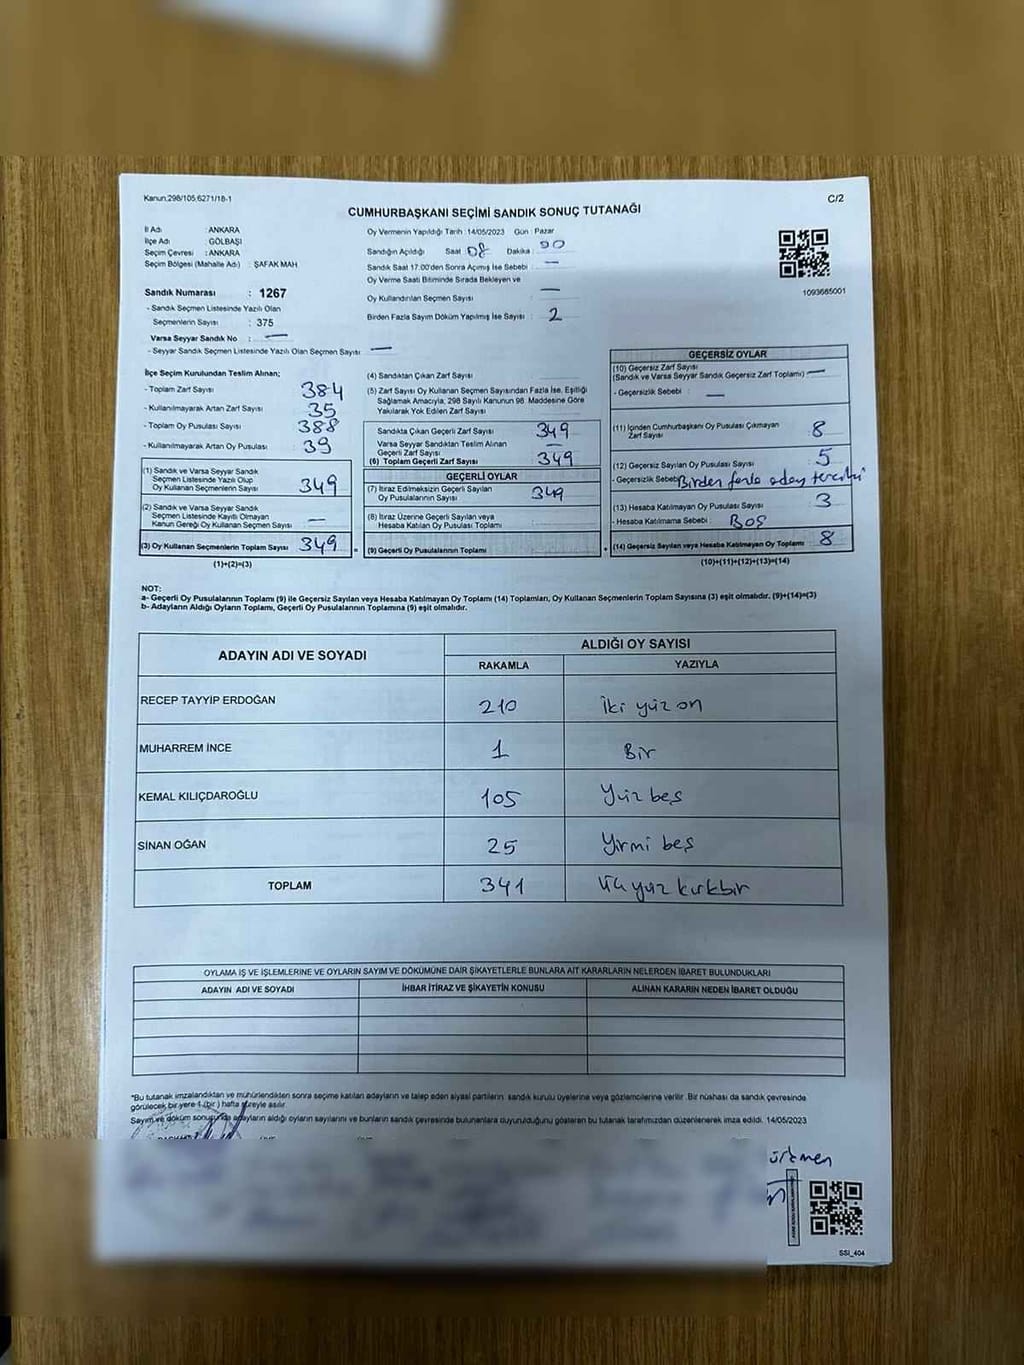 Kanun:298/105;6271/18-1
C/2
CUMHURBAŞKANI SEÇİMİ SANDIK SONUÇ TUTANAĞI
İl Adı : ANKARA
İlçe Adı : GÖLBAŞI
Seçim Çevresi : ANKARA
Seçim Bölgesi (Mahalle Adı) : ŞAFAK MAH
Sandık Numarası : 1267
- Sandık Seçmen Listesinde Yazılı Olan
Seçmenlerin Sayısı : 375
Varsa Seyyar Sandık No : —
- Seyyar Sandık Seçmen Listesinde Yazılı Olan Seçmen Sayısı : —
Oy Vermenin Yapıldığı Tarih : 14/05/2023 Gün : Pazar
Sandığın Açıldığı Saat : 08 Dakika :
Sandık Saat 17.00'den Sonra Açılmış İse Sebebi : —
Oy Verme Saati Bitiminde Sırada Bekleyen ve
Oy Kullandırılan Seçmen Sayısı : —
Birden Fazla Sayım Döküm Yapılmış İse Sayısı : 2
1093685001
İlçe Seçim Kurulundan Teslim Alınan;
- Toplam Zarf Sayısı : 384
- Kullanılmayarak Artan Zarf Sayısı : 35
- Toplam Oy Pusulası Sayısı : 388
- Kullanılmayarak Artan Oy Pusulası : 39
(1) Sandık ve Varsa Seyyar Sandık
Seçmen Listesinde Yazılı Olup
Oy Kullanan Seçmenlerin Sayısı : 349
(2) Sandık ve Varsa Seyyar Sandık
Seçmen Listesinde Kayıtlı Olmayan
Kanun Gereği Oy Kullanan Seçmen Sayısı : —
(3) Oy Kullanan Seçmenlerin Toplam Sayısı : 349
(1)+(2)=(3)
(4) Sandıktan Çıkan Zarf Sayısı :
(5) Zarf Sayısı Oy Kullanan Seçmen Sayısından Fazla İse, Eşitliği
Sağlamak Amacıyla, 298 Sayılı Kanunun 98. Maddesine Göre
Yakılarak Yok Edilen Zarf Sayısı :
Sandıkta Çıkan Geçerli Zarf Sayısı : 349
Varsa Seyyar Sandıktan Teslim Alınan
Geçerli Zarf Sayısı : —
(6) Toplam Geçerli Zarf Sayısı : 349
GEÇERLİ OYLAR
(7) İtiraz Edilmeksizin Geçerli Sayılan
Oy Pusulalarının Sayısı : 349
(8) İtiraz Üzerine Geçerli Sayılan veya
Hesaba Katılan Oy Pusulası Toplamı :
= (9) Geçerli Oy Pusulalarının Toplamı :
GEÇERSİZ OYLAR
(10) Geçersiz Zarf Sayısı
(Sandık ve Varsa Seyyar Sandık Geçersiz Zarf Toplamı) : —
- Geçersizlik Sebebi : —
(11) İçinden Cumhurbaşkanı Oy Pusulası Çıkmayan
Zarf Sayısı : 8
(12) Geçersiz Sayılan Oy Pusulası Sayısı : 5
- Geçersizlik Sebebi : Birden fazla aday tercihi
(13) Hesaba Katılmayan Oy Pusulası Sayısı : 3
- Hesaba Katılmama Sebebi : Boş
+ (14) Geçersiz Sayılan veya Hesaba Katılmayan Oy Toplamı : 8
(10)+(11)+(12)+(13)=(14)
NOT:
a- Geçerli Oy Pusulalarının Toplamı (9) ile Geçersiz Sayılan veya Hesaba Katılmayan Oy Toplamı (14) Toplamları, Oy Kullanan Seçmenlerin Toplam Sayısına (3) eşit olmalıdır. (9)+(14)=(3)
b- Adayların Aldığı Oyların Toplamı, Geçerli Oy Pusulalarının Toplamına (9) eşit olmalıdır.
ADAYIN ADI VE SOYADI
ALDIĞI OY SAYISI
RAKAMLA YAZIYLA
RECEP TAYYİP ERDOĞAN 210 İki yüz on
MUHARREM İNCE 1 Bir
KEMAL KILIÇDAROĞLU 105 Yüz beş
SİNAN OĞAN 25 Yirmi beş
TOPLAM 341 Üç yüz kırkbir
OYLAMA İŞ VE İŞLEMLERİNE VE OYLARIN SAYIM VE DÖKÜMÜNE DAİR ŞİKAYETLERLE BUNLARA AİT KARARLARIN NELERDEN İBARET BULUNDUKLARI
ADAYIN ADI VE SOYADI İHBAR İTİRAZ VE ŞİKAYETİN KONUSU ALINAN KARARIN NEDEN İBARET OLDUĞU
*Bu tutanak imzalandıktan ve mühürlendikten sonra seçime katılan adayların ve talep eden siyasi partilerin sandık kurulu üyelerine veya gözlemcilerine verilir. Bir nüshası da sandık çevresinde
görülecek bir yere 1 (bir) hafta süreyle asılır.
Sayım ve döküm sonucunda adayların aldığı oyların sayılarını ve bunların sandık çevresinde bulunanlara duyurulduğunu gösteren bu tutanak tarafımızdan düzenlenerek imza edildi. 14/05/2023
SSI_404